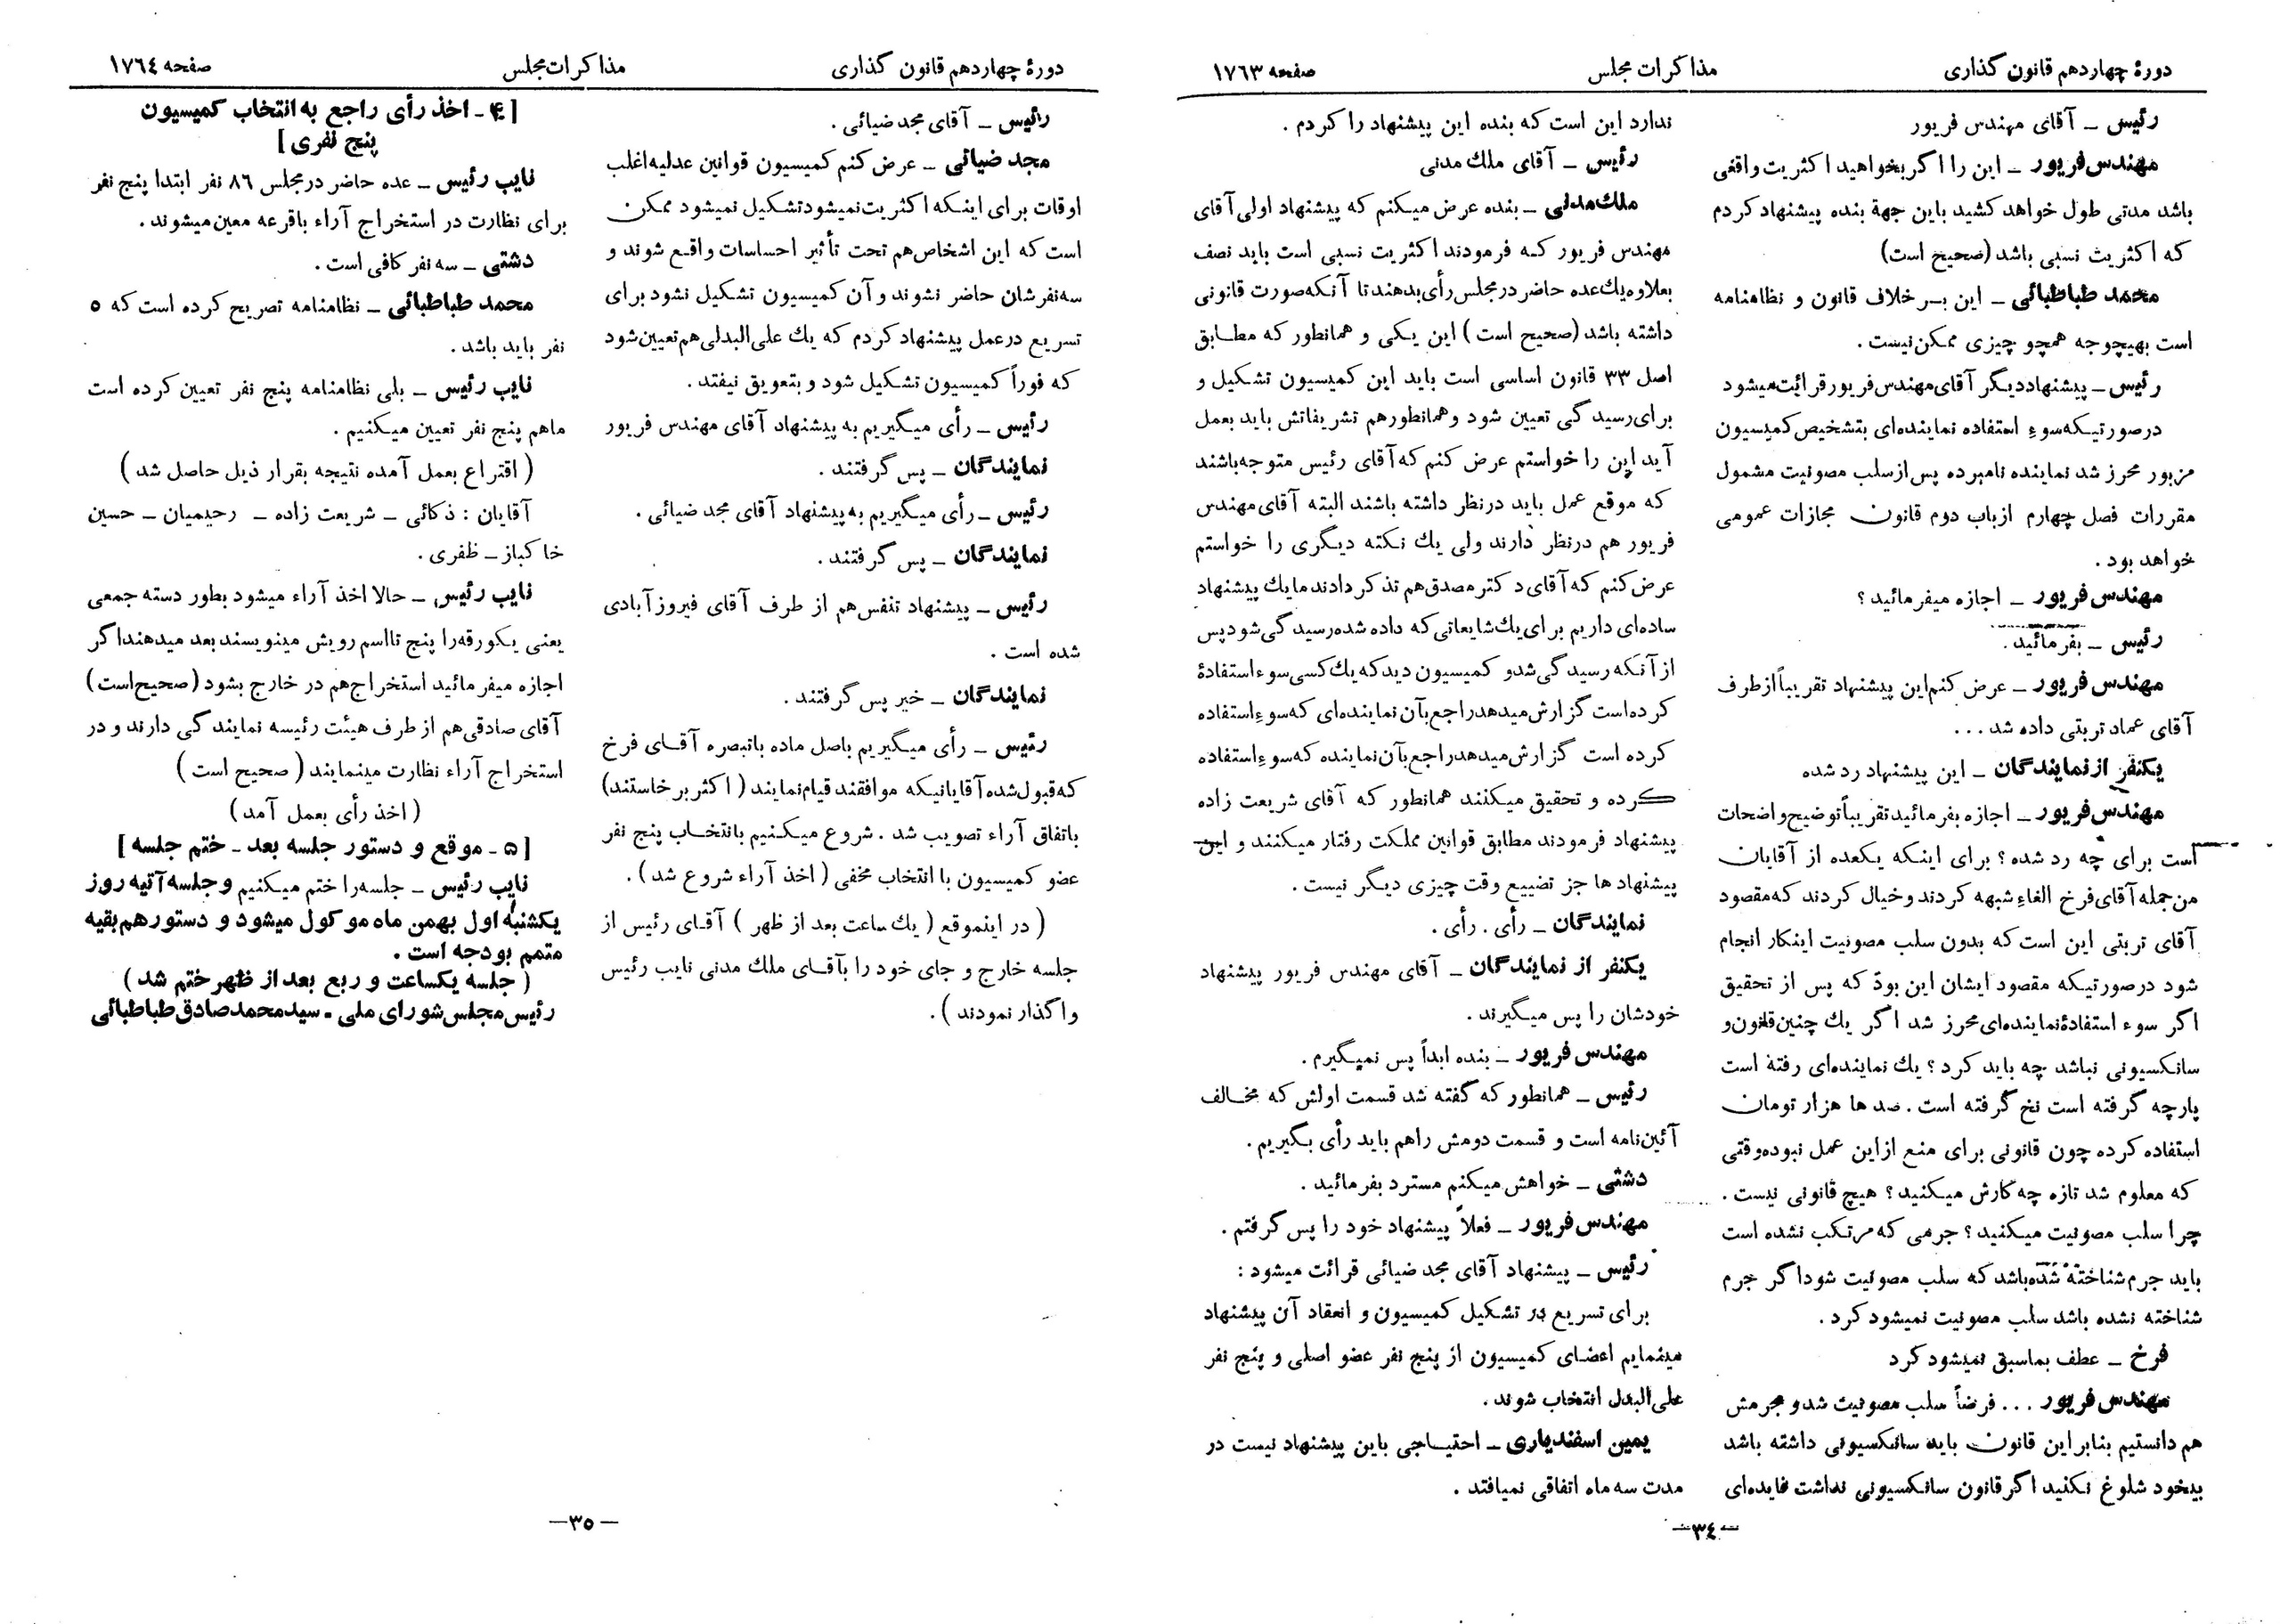 دورهٔ چهاردهم قانون گذاری
مذاکرات مجلس
صفحه ۱۷٦۳
رئیس ــ آقای مهندس فریور
مهندس فریور ــ این را اگر بخواهید اکثریت واقعی
باشد مدتی طول خواهد کشید باین جهة بنده پیشنهاد کردم
که اکثریت نسبی باشد (صحیح است)
محمد طباطبائی ــ این بر خلاف قانون و نظامنامه
است بهیچوجه همچو چیزی ممکن نیست .
رئیس ــ پیشنهاد دیگر آقای مهندس فریور قرائت میشود
درصورتیکه سوء استفاده نماینده‌ای بتشخیص کمیسیون
مزبور محرز شد نماینده نامبرده پس از سلب مصونیت مشمول
مقررات فصل چهارم از باب دوم قانون مجازات عمومی
خواهد بود .
مهندس فریور ــ اجازه میفرمائید ؟
رئیس ــ بفرمائید.
مهندس فریور ــ عرض کنم این پیشنهاد تقریباً از طرف
آقای عماد تربتی داده شد ...
یکنفر از نمایندگان ــ این پیشنهاد رد شده
مهندس فریور ــ اجازه بفرمائید تقریباً توضیح واضحات
است برای چه رد شده ؟ برای اینکه یکعده از آقایان
من جمله آقای فرخ الغاء شبهه کردند و خیال کردند که مقصود
آقای تربتی این است که بدون سلب مصونیت اینکار انجام
شود درصورتیکه مقصود ایشان این بود که پس از تحقیق
اگر سوء استفادهٔ نماینده‌ای محرز شد اگر یك چنین قانون و
سانکسیونی نباشد چه باید کرد ؟ یك نماینده‌ای رفته است
پارچه گرفته است نخ گرفته است . صد ها هزار تومان
استفاده کرده چون قانونی برای منع از این عمل نبوده وقتی
که معلوم شد تازه چه کارش میکنید ؟ هیچ قانونی نیست .
چرا سلب مصونیت میکنید ؟ جرمی که مرتکب نشده است
باید جرم شناخته شده باشد که سلب مصونیت شود اگر جرم
شناخته نشده باشد سلب مصونیت نمیشود کرد .
فرخ ــ عطف بماسبق نمیشود کرد
مهندس فریور ... فرضاً سلب مصونیت شد و مجرمش
هم دانستیم بنابر این قانون باید سانکسیونی داشته باشد
بیخود شلوغ نکنید اگر قانون سانکسیونی نداشت فایده‌ای
ندارد این است که بنده این پیشنهاد را کردم .
رئیس ــ آقای ملك مدنی
ملك مدنی ــ بنده عرض میکنم که پیشنهاد اولی آقای
مهندس فریور که فرمودند اکثریت نسبی است باید نصف
بعلاوه یك عده حاضر در مجلس رأی بدهند تا آنکه صورت قانونی
داشته باشد (صحیح است) این یکی و همانطور که مطابق
اصل ۳۳ قانون اساسی است باید این کمیسیون تشکیل و
برای رسید گی تعیین شود و همانطور هم تشریفاتش باید بعمل
آید این را خواستم عرض کنم که آقای رئیس متوجه باشند
که موقع عمل باید در نظر داشته باشند البته آقای مهندس
فریور هم در نظر دارند ولی یك نکته دیگری را خواستم
عرض کنم که آقای دکتر مصدق هم تذکر دادند ما یك پیشنهاد
ساده‌ای داریم برای یك شایعاتی که داده شده رسید گی شود پس
از آنکه رسید گی شد و کمیسیون دید که یك کسی سوء استفادهٔ
کرده است گزارش میدهد راجع بآن نماینده‌ای که سوء استفاده
کرده است گزارش میدهد راجع بآن نماینده که سوء استفاده
کرده و تحقیق میکنند همانطور که آقای شریعت زاده
پیشنهاد فرمودند مطابق قوانین مملکت رفتار میکنند و این
پیشنهاد ها جز تضییع وقت چیزی دیگر نیست .
نمایندگان ــ رأی . رأی .
یکنفر از نمایندگان ــ آقای مهندس فریور پیشنهاد
خودشان را پس میگیرند .
مهندس فریور ــ بنده ابداً پس نمیگیرم .
رئیس ــ همانطور که گفته شد قسمت اولش که مخالف
آئین‌نامه است و قسمت دومش را هم باید رأی بگیریم .
دشتی ــ خواهش میکنم مسترد بفرمائید .
مهندس فریور ــ فعلاً پیشنهاد خود را پس گرفتم .
رئیس ــ پیشنهاد آقای مجد ضیائی قرائت میشود :
برای تسریع در تشکیل کمیسیون و انعقاد آن پیشنهاد
مینمایم اعضای کمیسیون از پنج نفر عضو اصلی و پنج نفر
علی‌البدل انتخاب شوند .
یمین اسفندیاری ــ احتیاجی باین پیشنهاد نیست در
مدت سه ماه اتفاقی نمیافتد .
ــ۳٤ــ
دورهٔ چهاردهم قانون گذاری
مذاکرات مجلس
صفحه ۱۷٦٤
رئیس ــ آقای مجد ضیائی .
مجد ضیائی ــ عرض کنم کمیسیون قوانین عدلیه اغلب
اوقات برای اینکه اکثریت نمیشود تشکیل نمیشود ممکن
است که این اشخاص هم تحت تأثیر احساسات واقع شوند و
سه نفرشان حاضر نشوند و آن کمیسیون تشکیل نشود برای
تسریع در عمل پیشنهاد کردم که یك علی البدلی هم تعیین شود
که فوراً کمیسیون تشکیل شود و بتعویق نیفتد .
رئیس ــ رأی میگیریم به پیشنهاد آقای مهندس فریور
نمایندگان ــ پس گرفتند .
رئیس ــ رأی میگیریم به پیشنهاد آقای مجد ضیائی .
نمایندگان ــ پس گرفتند .
رئیس ــ پیشنهاد تنفس هم از طرف آقای فیروز آبادی
شده است .
نمایندگان ــ خیر پس گرفتند .
رئیس ــ رأی میگیریم باصل ماده با تبصره آقای فرخ
که قبول شده آقایانیکه موافقند قیام نمایند (اکثر برخاستند)
باتفاق آراء تصویب شد . شروع میکنیم بانتخاب پنج نفر
عضو کمیسیون با انتخاب مخفی (اخذ آراء شروع شد) .
(در اینموقع (یك ساعت بعد از ظهر) آقای رئیس از
جلسه خارج و جای خود را بآقای ملك مدنی نایب رئیس
واگذار نمودند) .
[۴ ـ اخذ رأی راجع به انتخاب کمیسیون
پنج نفری]
نایب رئیس ــ عده حاضر در مجلس ۸٦ نفر ابتدا پنج نفر
برای نظارت در استخراج آراء باقرعه معین میشوند .
دشتی ــ سه نفر کافی است .
محمد طباطبائی ــ نظامنامه تصریح کرده است که ٥
نفر باید باشد .
نایب رئیس ــ بلی نظامنامه پنج نفر تعیین کرده است
ماهم پنج نفر تعیین میکنیم .
(اقتراع بعمل آمده نتیجه بقرار ذیل حاصل شد)
آقایان : ذکائی ــ شریعت زاده ــ رحیمیان ــ حسین
خاکباز ــ ظفری .
نایب رئیس ــ حالا اخذ آراء میشود بطور دسته جمعی
یعنی یکورقه را پنج تا اسم رویش مینویسند بعد میدهند اگر
اجازه میفرمائید استخراج هم در خارج بشود (صحیح است)
آقای صادقی هم از طرف هیئت رئیسه نمایند گی دارند و در
استخراج آراء نظارت مینمایند (صحیح است)
(اخذ رأی بعمل آمد)
[۵ ـ موقع و دستور جلسه بعد ـ ختم جلسه]
نایب رئیس ــ جلسه را ختم میکنیم و جلسه آتیه روز
یکشنبه اول بهمن ماه موکول میشود و دستور هم بقیه
متمم بودجه است .
(جلسه یکساعت و ربع بعد از ظهر ختم شد)
رئیس مجلس شورای ملی ـ سید محمد صادق طباطبائی
ــ۳٥ــ